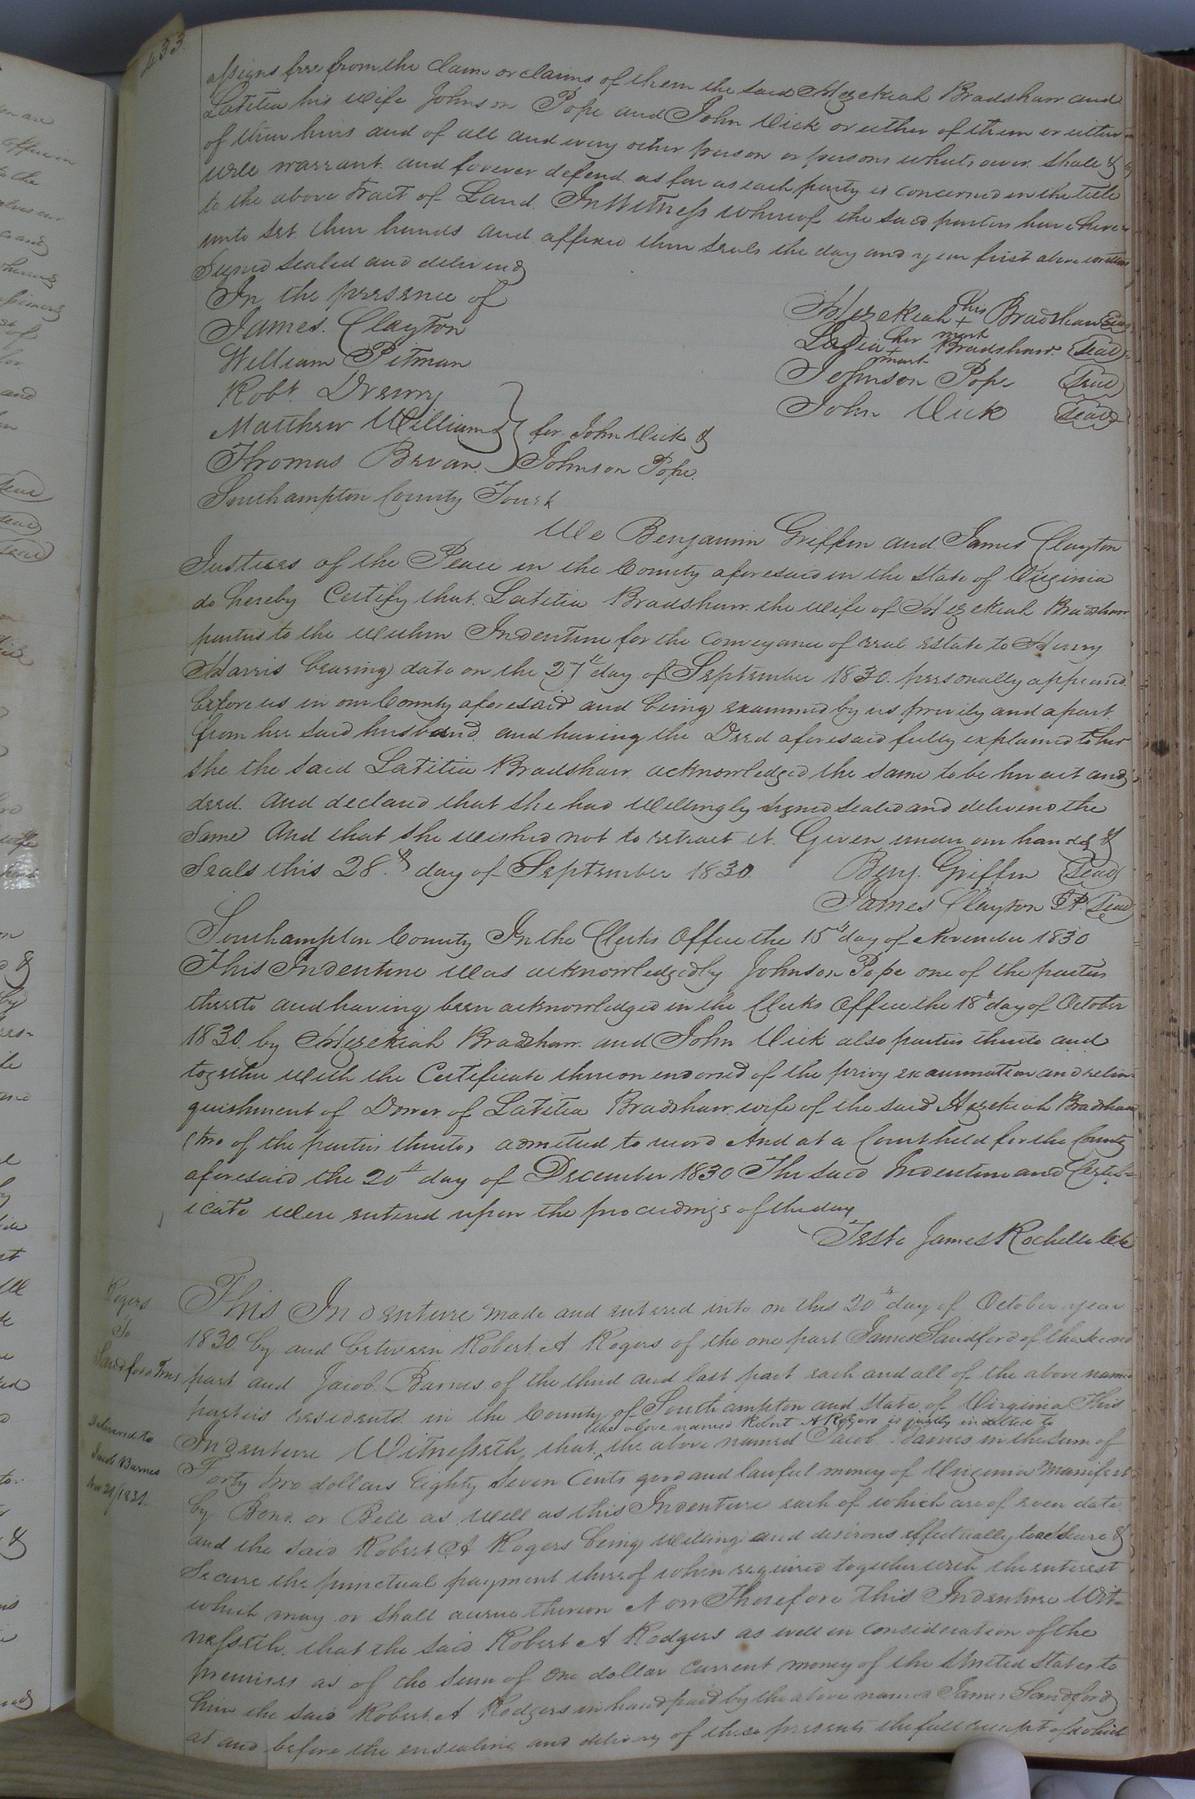 433
assigns free from the claim or claims of them the said Hezekiah Bradshaw and
Latitia his wife Johnson Pope and John Vick or either of them or either
of their heirs and of all and every other person or persons whatsoever shall &
will warrant and forever defend as far as each party is concerned in the title
to the above tract of Land. In Witness whereof the said parties have here
unto set their hands and affixed their seals the day and year first above written
Signed sealed and delivered
In the presence of
James. Clayton
William Pitman
Robt. Drewry
Matthew Williams } for John Vick &
Thomas Bevan } Johnson Pope.
Hezekiah his + mark Bradshaw Seal
Latitia her + mark Bradshaw Seal
Johnson Pope Seal
John Vick Seal
Southampton County Towit
We Benjamin Griffin and James Clayton
Justices of the Peace in the County aforesaid in the State of Virginia
do hereby Certify that Latitia Bradshaw the wife of Hezekiah Bradshaw
parties to the within Indenture for the conveyance of real estate to Henry
Harris bearing date on the 27th day of September 1830. personally appeared
before us in our County aforesaid and being examined by us privily and apart
from her said husband. and having the Deed aforesaid fully explained to her
she the said Latitia Bradshaw acknowledged the same to be her act and
deed. and declared that she had willingly signed sealed and delivered the
same And that she wished not to retract it. Given under our hands &
Seals this 28th day of September 1830
Benj. Griffin Seal
James Clayton J.P. Seal
Southampton County In the Clerks Office the 15th day of November 1830
This Indenture was acknowledged by Johnson Pope one of the parties
thereto and having been acknowledged in the Clerks Office the 18th day of October
1830 by Hezekiah Bradshaw and John Vick also parties thereto and
together with the Certificate thereon endorsed of the privy examination and relin
quishment of Dower of Latitia Bradshaw wife of the said Hezekiah Bradshaw
(two of the parties thereto, admitted to record And at a Court held for the County
aforesaid the 20th day of December 1830 The said Indenture and Certif-
icate were entered upon the proceedings of the day
Teste James Rochelle Clk
Rogers
To
Sandford Trus
Delivered to
Jacob Barnes
This Indenture made and entered into on this 20th day of October year
1830 by and between Robert A Rogers of the one part James Sandford of the second
part and Jacob. Barnes of the third and last part each and all of the above name
parties residents in the County of Southampton and State of Virginia This
the above named Robert A Rogers is justly indebted to
Indenture Witnesseth, that, the above named Jacob. Barnes in the sum of
Forty two dollars Eighty Seven Cents good and lawful money of Virginia manifest
by Bond or Bill as well as this Indenture each of which are of even date
and the said Robert A Rogers being willing and desirous effectually to &
Secure the punctual payment thereof when required together with the interest
which may or shall accrue thereon Now Therefore This Indenture Wit-
nesseth. that the said Robert A Rodgers as well in consideration of the
premises as of the sum of one dollar current money of the United States to
him the said Robert A Rodgers in hand paid by the above named James Sandford
at and before the ensealing and delivery of these presents the full receipt of which